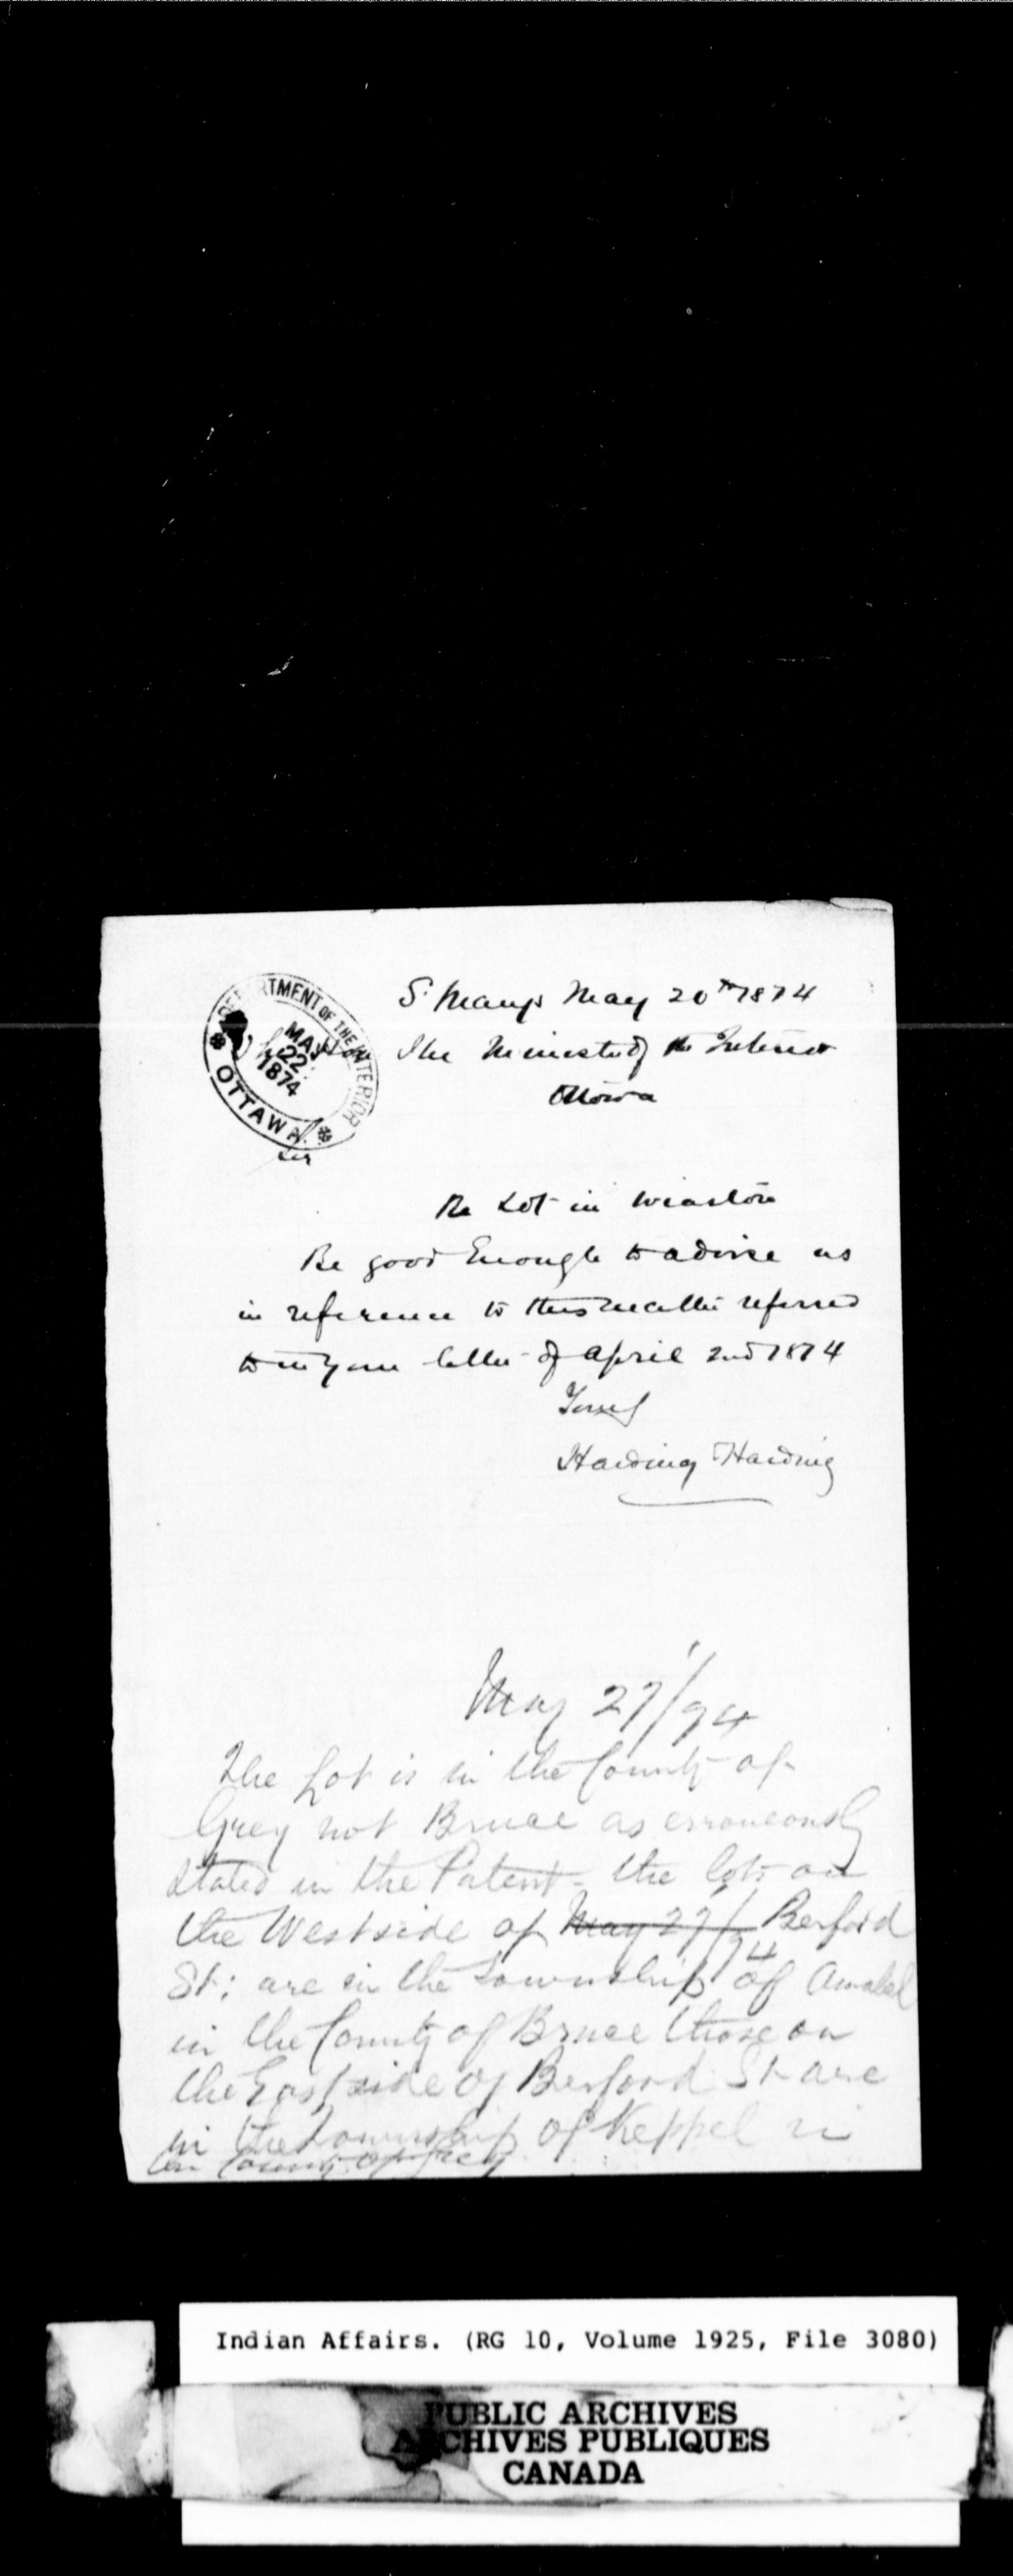 S<sup>t</sup> Marys May 20th 1874
DEPARTMENT OF THE INTERIOR
MAY
22
1874
OTTAWA
The Minister of the Interior
Ottawa
Sir
Re Lot in Wiarton
Be good Enough to advise us
in reference to this matter referred
to in your letter of April 2nd 1874
Yours
Harding Harding
May 27/74
The Lot is in the County of
Grey not Bruce as erroneously
stated in the Patent - the lots on
the West side of May 27/74 Berford
St: are in the Township of Amabel
in the County of Bruce those on
the East side of Berford St are
in the Township of Keppel in
County of Grey
Indian Affairs. (RG 10, Volume 1925, File 3080)
PUBLIC ARCHIVES
ARCHIVES PUBLIQUES
CANADA